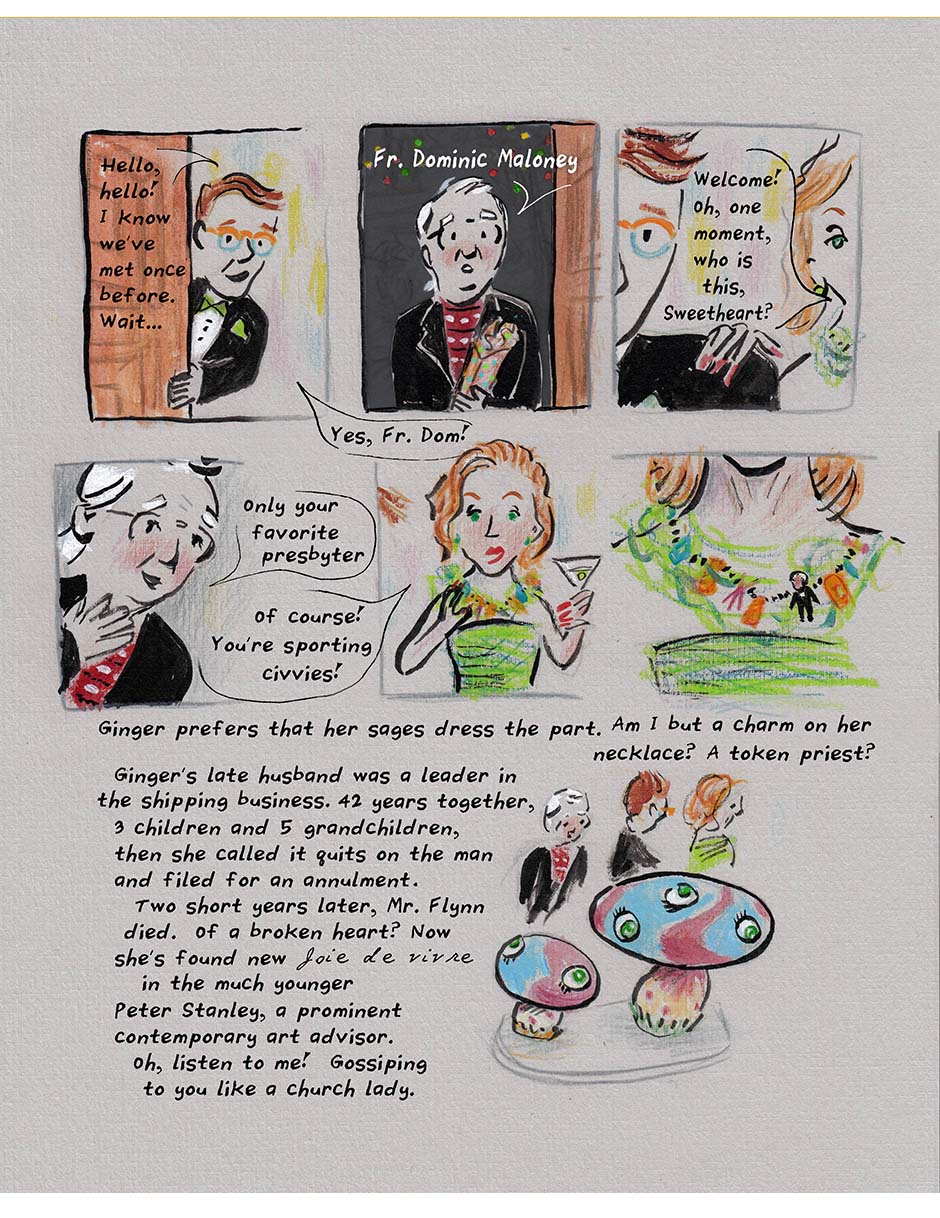 Hello,
hello!
I know
we've
met once
before.
Wait...
Fr. Dominic Maloney
Yes, Fr. Dom!
Welcome!
Oh, one
moment,
who is
this,
Sweetheart?
Only your
favorite
presbyter
Of course!
You're sporting
civvies!
Ginger prefers that her sages dress the part.
Am I but a charm on her
necklace? A token priest?
Ginger's late husband was a leader in
the shipping business. 42 years together,
3 children and 5 grandchildren,
then she called it quits on the man
and filed for an annulment.
Two short years later, Mr. Flynn
died. Of a broken heart? Now
she's found new Joie de vivre
in the much younger
Peter Stanley, a prominent
contemporary art advisor.
Oh, listen to me! Gossiping
to you like a church lady.